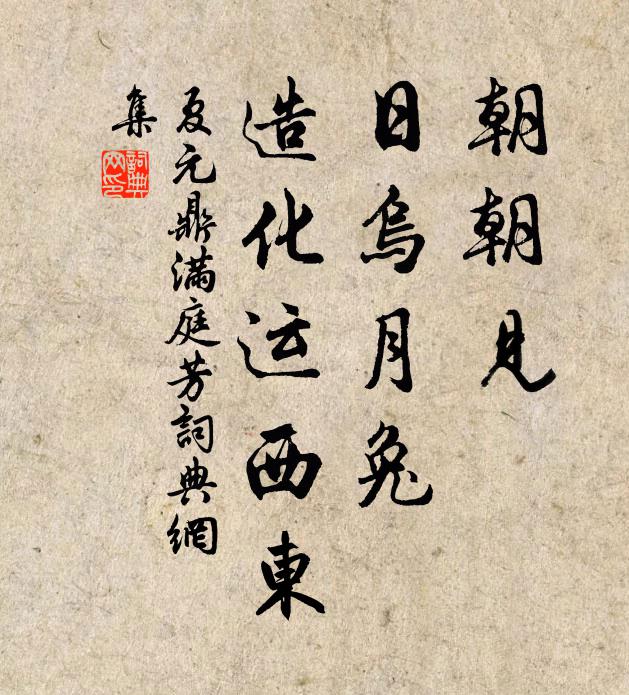 朝朝見
日烏月兔
造化运西東
夏元鼎滿庭芳詞典網
集
詞典
网印